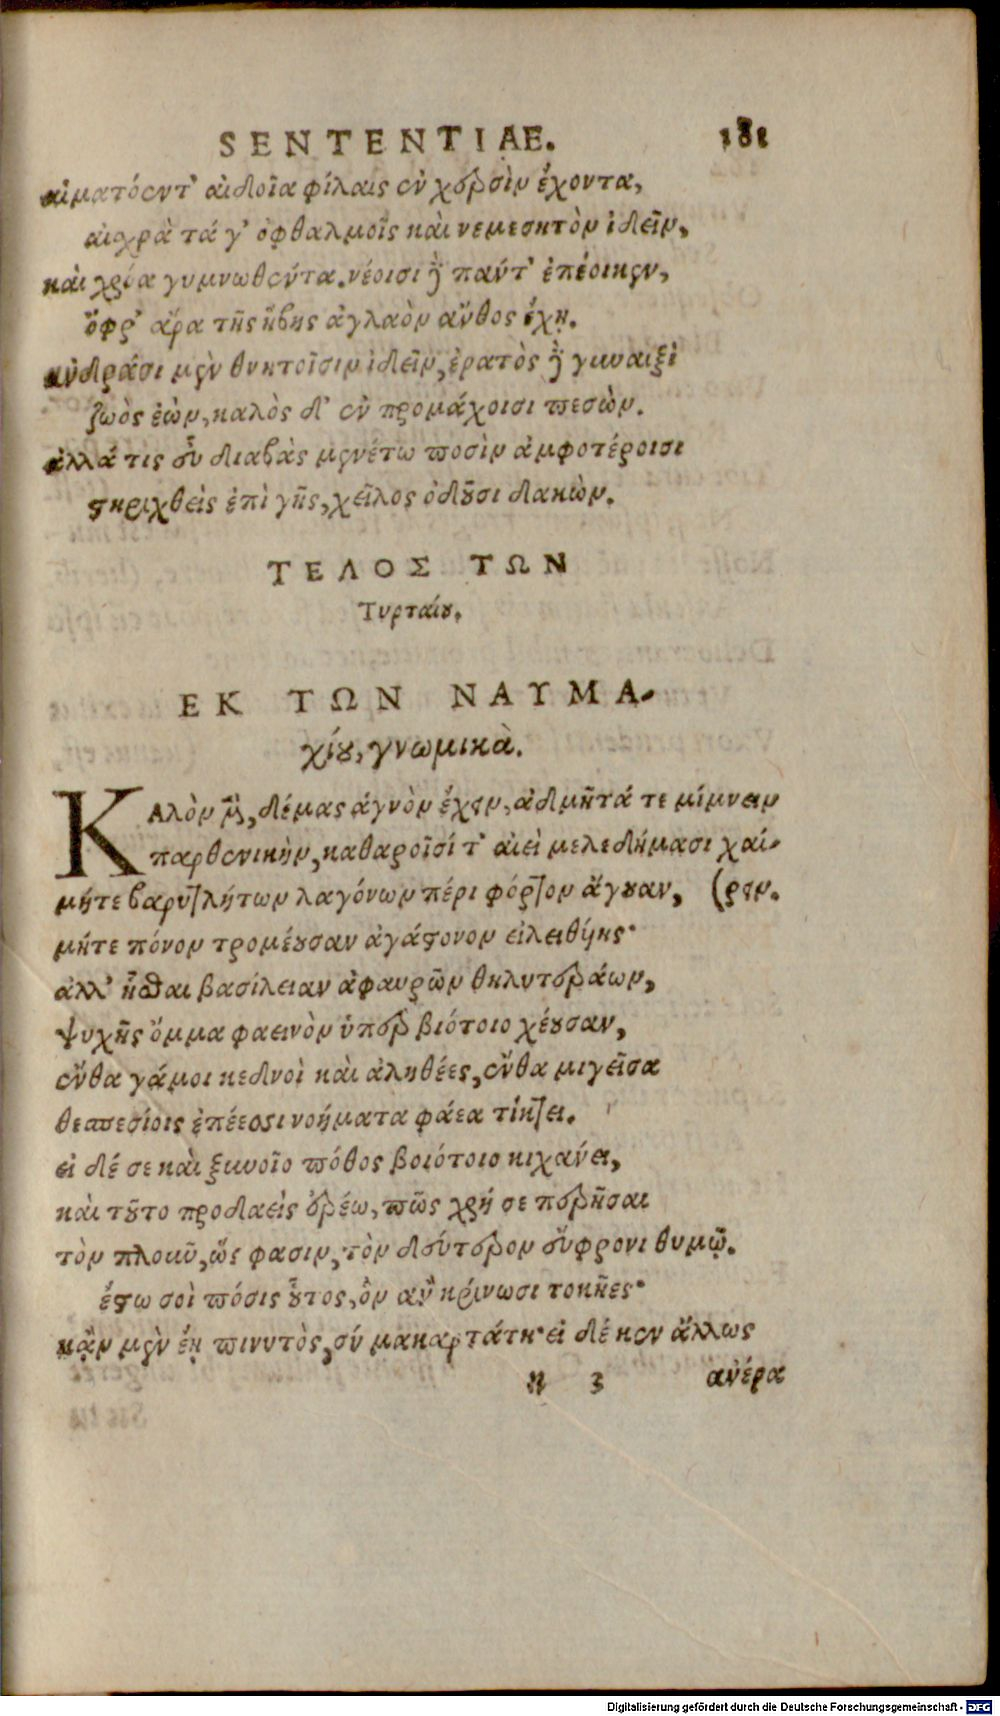 SENTENTIAE. 181
αἱματόεντ' αἰδοῖα φίλαις ἐν χερσὶν ἔχοντα,
αἰσχρὰ τά γ' ὀφθαλμοῖς καὶ νεμεσητὸν ἰδεῖν,
καὶ χρόα γυμνωθέντα. νέοισι δὲ πάντ' ἐπέοικεν,
ὄφρ' ἄρα τῆς ἥβης ἀγλαὸν ἄνθος ἔχῃ.
ἀνδράσι μὲν θνητοῖσιν ἰδεῖν, ἐρατὸς δὲ γυναιξὶ
ζωὸς ἐὼν, καλὸς δ' ἐν προμάχοισι πεσὼν.
ἀλλά τις εὖ διαβὰς μενέτω ποσὶν ἀμφοτέροισι
στηριχθεὶς ἐπὶ γῆς, χεῖλος ὀδοῦσι δακὼν.
ΤΕΛΟΣ ΤΩΝ
Τυρταίου.
ΕΚ ΤΩΝ ΝΑΥΜΑ-
χίου, γνωμικὰ.
ΚΑλὸν μὲν, δέμας ἁγνὸν ἔχειν, ἀδμῆτά τε μίμνειν
παρθενικὴν, καθαροῖσί τ' αἰεὶ μελεδήμασι χαί-
μήτε βαρυτλήτων λαγόνων πέρι φόρτον ἄγουσαν, (ρειν.
μήτε πόνον τρομέουσαν ἀγάστονον εἰλειθύης·
ἀλλ' ἧσθαι βασίλειαν ἀφαυρῶν θηλυτεράων,
ψυχῆς ὄμμα φαεινὸν ὑπὲρ βιότοιο χέουσαν,
ἔνθα γάμοι κεδνοὶ καὶ ἀληθέες, ἔνθα μιγεῖσα
θεσπεσίοις ἐπέεσσι νοήματα φάεα τίκτει.
εἰ δέ σε καὶ ξυνοῖο πόθος βοιότοιο κιχάνει,
καὶ τοῦτο προδαεὶς ἐρέω, πῶς χρή σε περῆσαι
τὸν πλοῦν, ὥς φασιν, τὸν δεύτερον εὔφρονι θυμῷ.
ἔστω σοὶ πόσις οὗτος, ὃν ἂν κρίνωσι τοκῆες·
κἂν μὲν ἔῃ πινυτὸς, σύ μακαρτάτη· εἰ δέ κεν ἄλλως
n 3 ἀνέρα
Digitalisierung gefördert durch die Deutsche Forschungsgemeinschaft - DFG